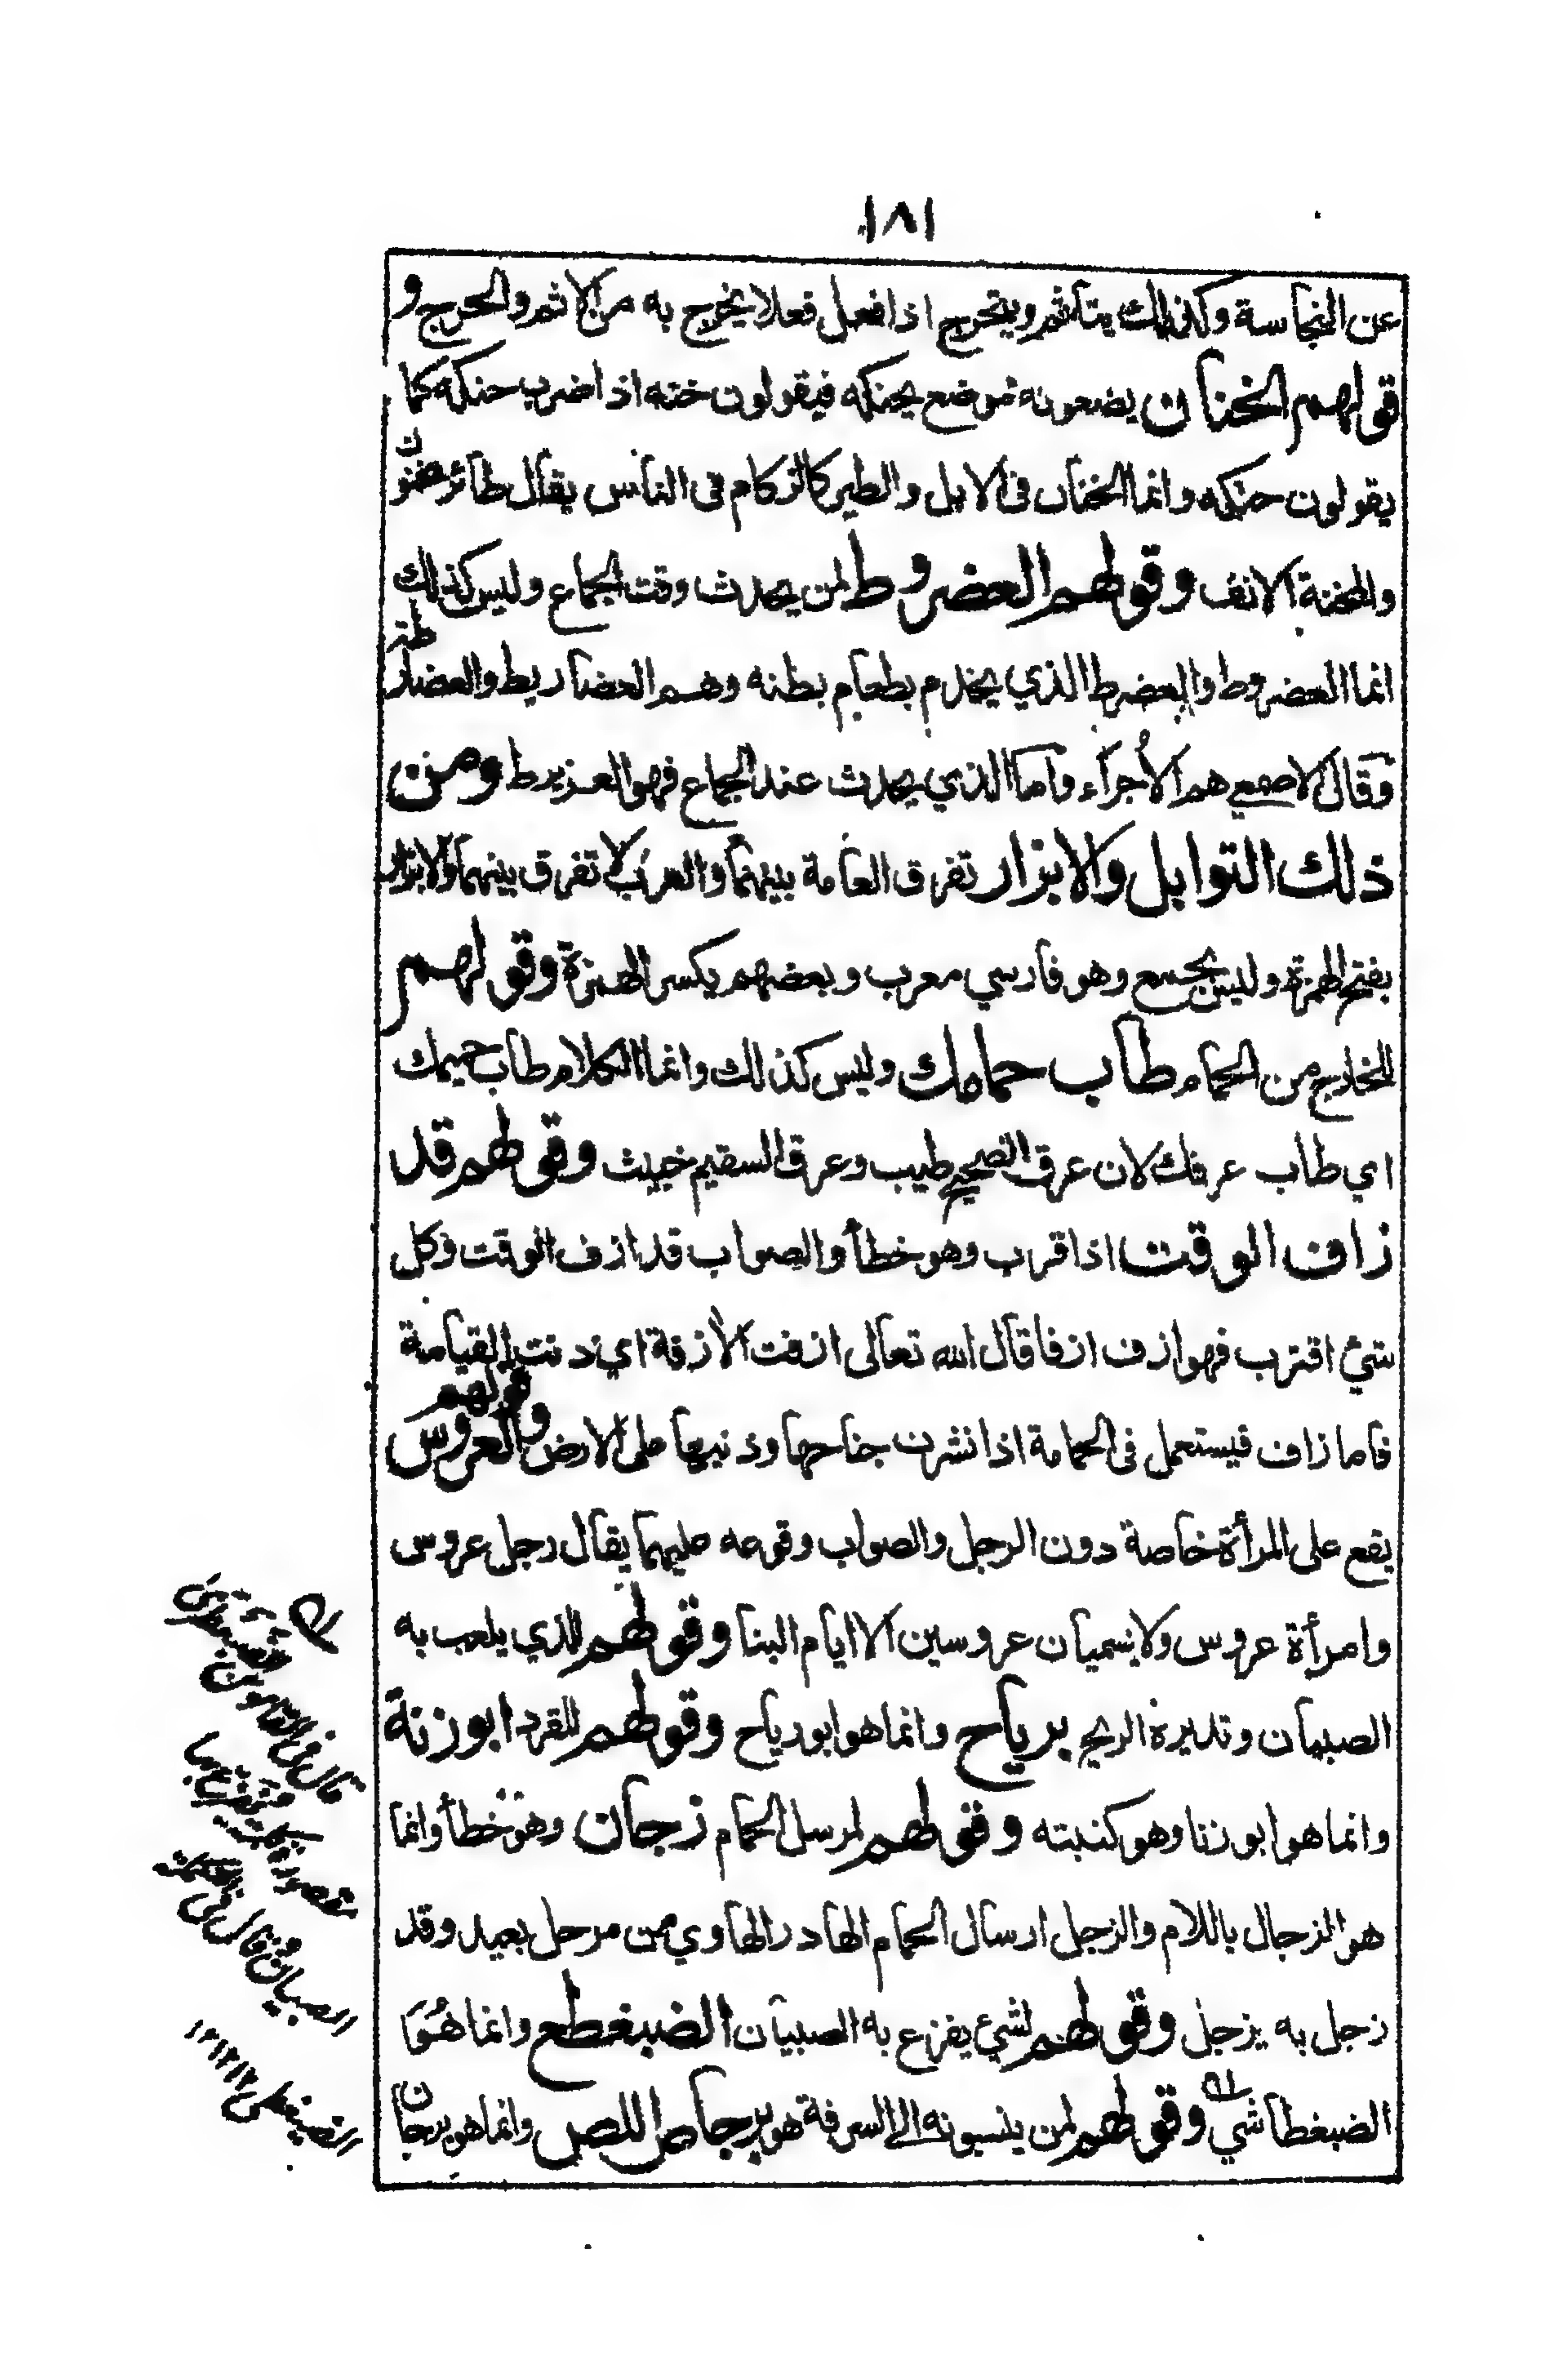 ١٨١
عن النجاسة وكذلك يتأثم ويتحرج اذا فعل فعلا يخرج به من الاثم والحرج و
قولهم الخنان يضعونه موضع يحنكه فيقولون خنه اذا ضرب حنكه كما
يقولون حنكه وانما الخنان فى الابل والطير كالزكام فى الناس يقال طائر مخنون
والمخنة الانف وقولهم العضروط لمن يحدث وقت الجماع وليس كذلك
انما العضروط والعضرط الذي يخدم بطعام بطنه وهم العضاريط والعضارطة
وقال الاصمعي هم الأجراء واما الذي يحدث عند الجماع فهو العزيرط ومن
ذلك التوابل والابزار تفرق العامة بينهما والعرب لا تفرق بينهما والابزار
بفتح الهمزة وليس بجمع وهو فارسي معرب وبعضهم يكسر الهمزة وقولهم
للخارج من الحمام طاب حمامك وليس كذلك وانما الكلام طاب حميمك
اي طاب عرقك لان عرق الصحيح طيب وعرق السقيم خبيث وقولهم قد
زاف الوقت اذا قرب وهو خطأ والصواب قد ازف الوقت وكل
شيئ اقترب فهو ازف ازفا قال الله تعالى ازفت الأزفة اي دنت القيامة
فاما زاف فيستعمل فى الحمامة اذا نشرت جناحها وذنبها على الارض وقولهم العروس
يقع على المرأة خاصة دون الرجل والصواب وقوعه عليهما يقال رجل عروس
وامرأة عروس ولا يسميان عروسين الا ايام البنا وقولهم للذي يلعب به
الصبيان وتديره الريح برياح وانما هو ابو رياح وقولهم للقرد ابو زنة
وانما هو ابو زنا وهو كنيته وقولهم لمرسل الحمام زجان وهو خطأ وانما
هو الزجال باللام والزجل ارسال الحمام الهادر الهاوي من مرحل بعيد وقد
زجل به يزجل وقولهم لشيئ يفزع به الصبيان الضبغطع وانما هُوَ
الضبغطا شي وقولهم لمن ينسبونه الى السرقة هو برجاص اللص وانما هو برجان
قال فى القاموس
مقصورة
الصبيان
الضبغطى